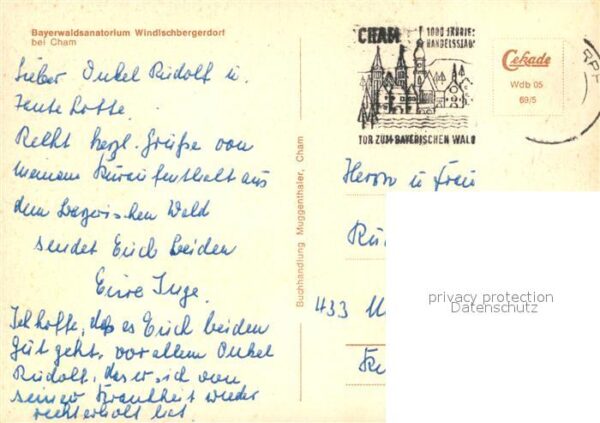 Bayerwaldsanatorium Windischbergerdorf
bei Cham
Lieber Onkel Rudolf u.
Tante Lotte.
Recht herzl. Grüße von
meinem Kuraufenthalt aus
dem bayerischen Wald
sendet Euch beiden
Eure Inge.
Ich hoffe, daß es Euch beiden
gut geht, vor allem Onkel
Rudolf, daß er sich von
seiner Krankheit wieder
recht erholt hat
Buchhandlung Muggenthaler, Cham
CHAM
1000 JÄHRIGE
HANDELSSTADT
TOR ZUM BAYERISCHEN WALD
Cekade
Wdb 05
69/5
Herrn u Frau
433 M
privacy protection
Datenschutz